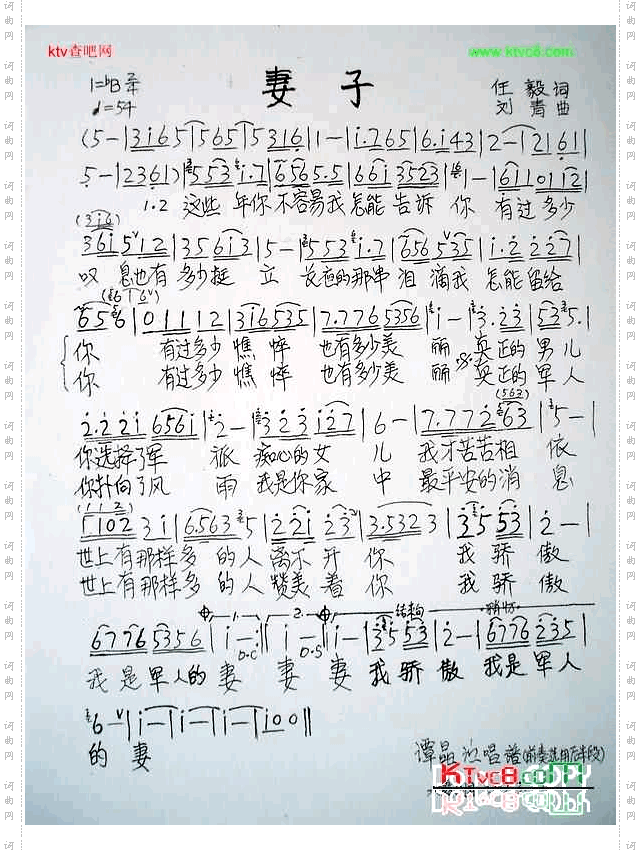 ktv查吧网 www.ktvc8.com
1=♭B 2/4
♩=54
妻子
任毅词
刘青曲
(5-|3i65|565|5316|1-|i.765|6.i43|2-|2161|
5-|2361)|553i.7|6565.5|66i3523|1-|6110112|
1.2 这些年你不容易我怎能告诉你 有过多少
(3i6)
36i5∨12|356i3|5-|553i.7|656535|i.2227|
叹息也有多少挺立 长夜的那串泪滴我怎能留给
6565|01112|316535|7.7765356|i-|3.23|535.|
你 有过多少憔悴 也有多少美丽 真正的男儿
你 有过多少憔悴 也有多少美丽 真正的军人
2.22i656i|2-|323i27|6-|7.77263|5-|
你选择了军旅 痴心的女儿 我才苦苦相依
你扑向了风雨 我是你家中 最平安的消息
(112)
i1023i|6.5635|22i23|3.5323|3553|2-|
世上有那样多的人离不开你 我骄傲
世上有那样多的人赞美着你 我骄傲
67765356|i-|i-|i-|3553|2-|6776235|
1. 2. D.C D.S 结束句 稍慢
我是军人的妻 妻 妻 我骄傲 我是军人
6-∨|i-|i-|i-|i00‖
的妻
谭晶演唱谱(前奏选用后半段)
KTvc8.com
COPY
词曲网